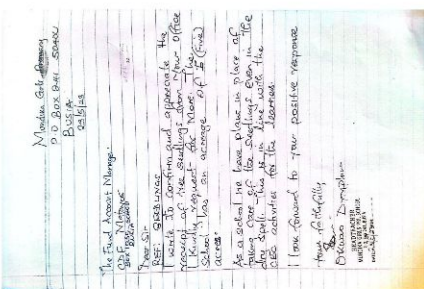 Mundika Girls
P.O BOX 241-50400
BUSIA
The Fund Account Manager
CDF Matayos
Dear Sir
REF: SEEDLINGS
I write to confirm and appreciate the
receipt of tree seedlings from your office
I kindly request for more. The
school has an acreage of 5 (five)
acres.
As a school we have place in place of
taking care of the seedlings even in the
dry spell. This is in line with the
CBC activities for the learners.
I look forward to your positive response
Yours faithfully